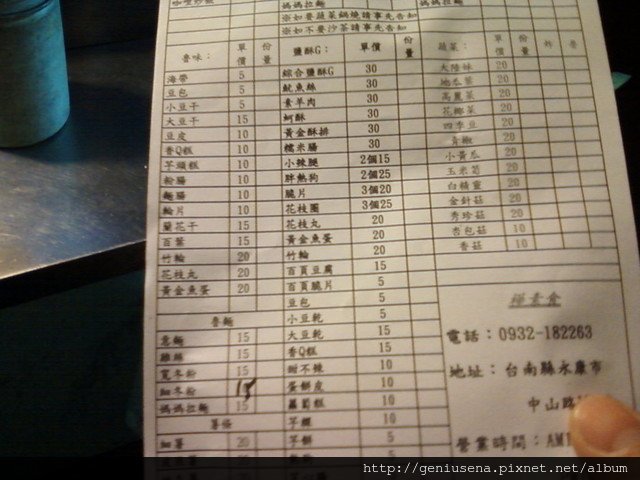 媽媽拉麵
※如要蔬菜鍋燒請事先告知
※如不要沙茶請事先告知
魯味： 單價 份量
海帶 5
豆包 5
小豆干 5
大豆干 15
豆皮 10
香Q糕 10
芋頭糕 10
粉腸 10
麵腸 10
輪片 10
蘭花干 15
百葉 15
竹輪 20
花枝丸 20
黃金魚蛋 20
魯麵
意麵 15
雞絲 15
寬冬粉 15
細冬粉 15
媽媽拉麵 15
薯條
細薯 20
鹽酥G： 單價 份量
綜合鹽酥G 30
魷魚絲 30
素羊肉 30
蚵酥 30
黃金酥排 30
糯米腸 30
小辣腿 2個15
胖熱狗 2個25
脆片 3個20
花枝圈 3個25
花枝丸 20
黃金魚蛋 20
竹輪 20
百頁豆腐 15
百頁脆片 5
豆包 5
小豆乾 5
大豆乾 15
香Q糕 15
甜不辣 10
蛋餅皮 10
蘿蔔糕 10
芋粿 10
芋餅 5
蔬菜： 單價 份量 炸
大陸妹 20
地瓜葉 20
高麗菜 20
花椰菜 20
四季豆 20
青椒 20
小黃瓜 20
玉米筍 20
白精靈 20
金針菇 20
秀珍菇 20
杏包菇 10
香菇 10
禪素食
電話：0932-182263
地址：台南縣永康市
中山路
營業時間：AM
http://geniusena.pixnet.net/album